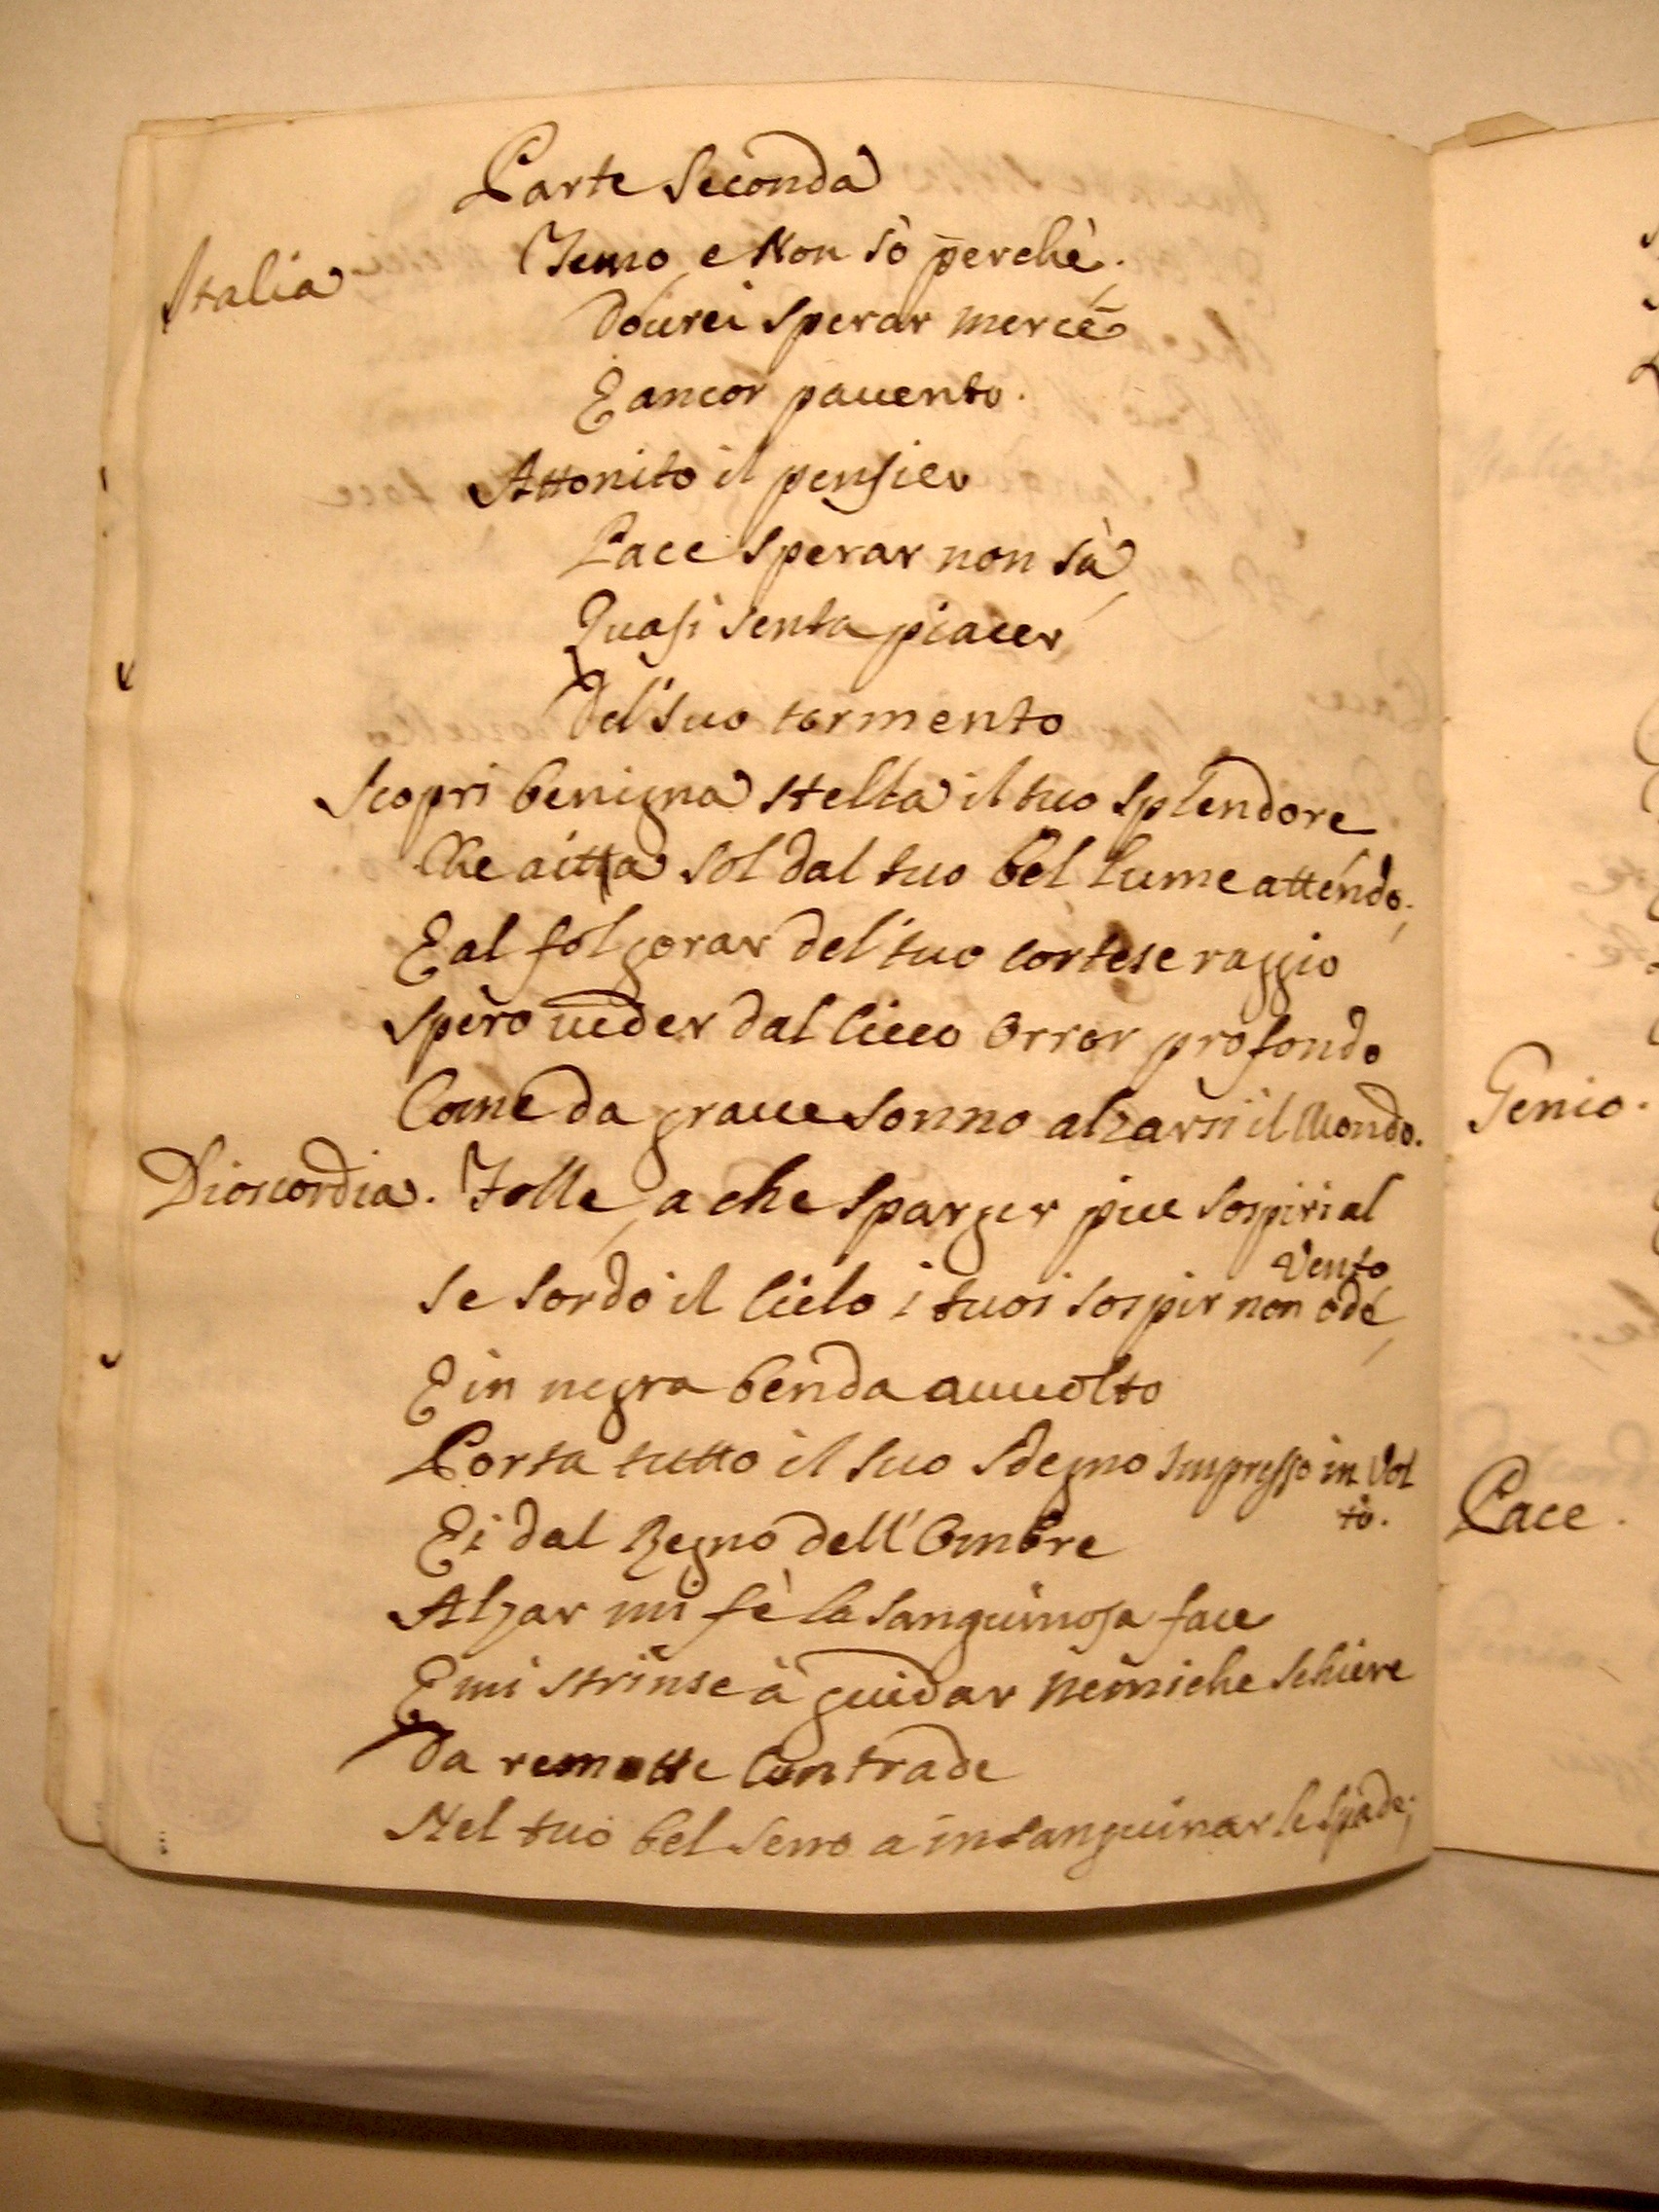 Parte Seconda
Italia Temo, e Non sò perchè.
Dourei sperar mercè
E ancor pauento.
Attonito il pensier
Pace sperar non sà,
Quasi senta piacer
Del' suo tormento
Scopri benigna stella il tuo splendore
Che aitta sol dal tuo bel lume attendo;
E al folgorar del' tuo cortese raggio
Spero ueder dal cieco orror profondo
Come da graue sonno alzarsi il Mondo.
Dioscordia. Folle, a che sparger piu sospiri al
Vento
Se sordo il Cielo i tuoi sospir non ode,
E in negra benda auuolto
Porta tutto il suo sdegno impresso in Vol
to.
Ei dal Regno dell' Ombre
Alzar mi fè la sanguinosa face
E mi strinse à guidar nemiche schiere
Da remotte Contrade
Nel tuo bel seno a insanguinar le spade;
Genio.
Pace.